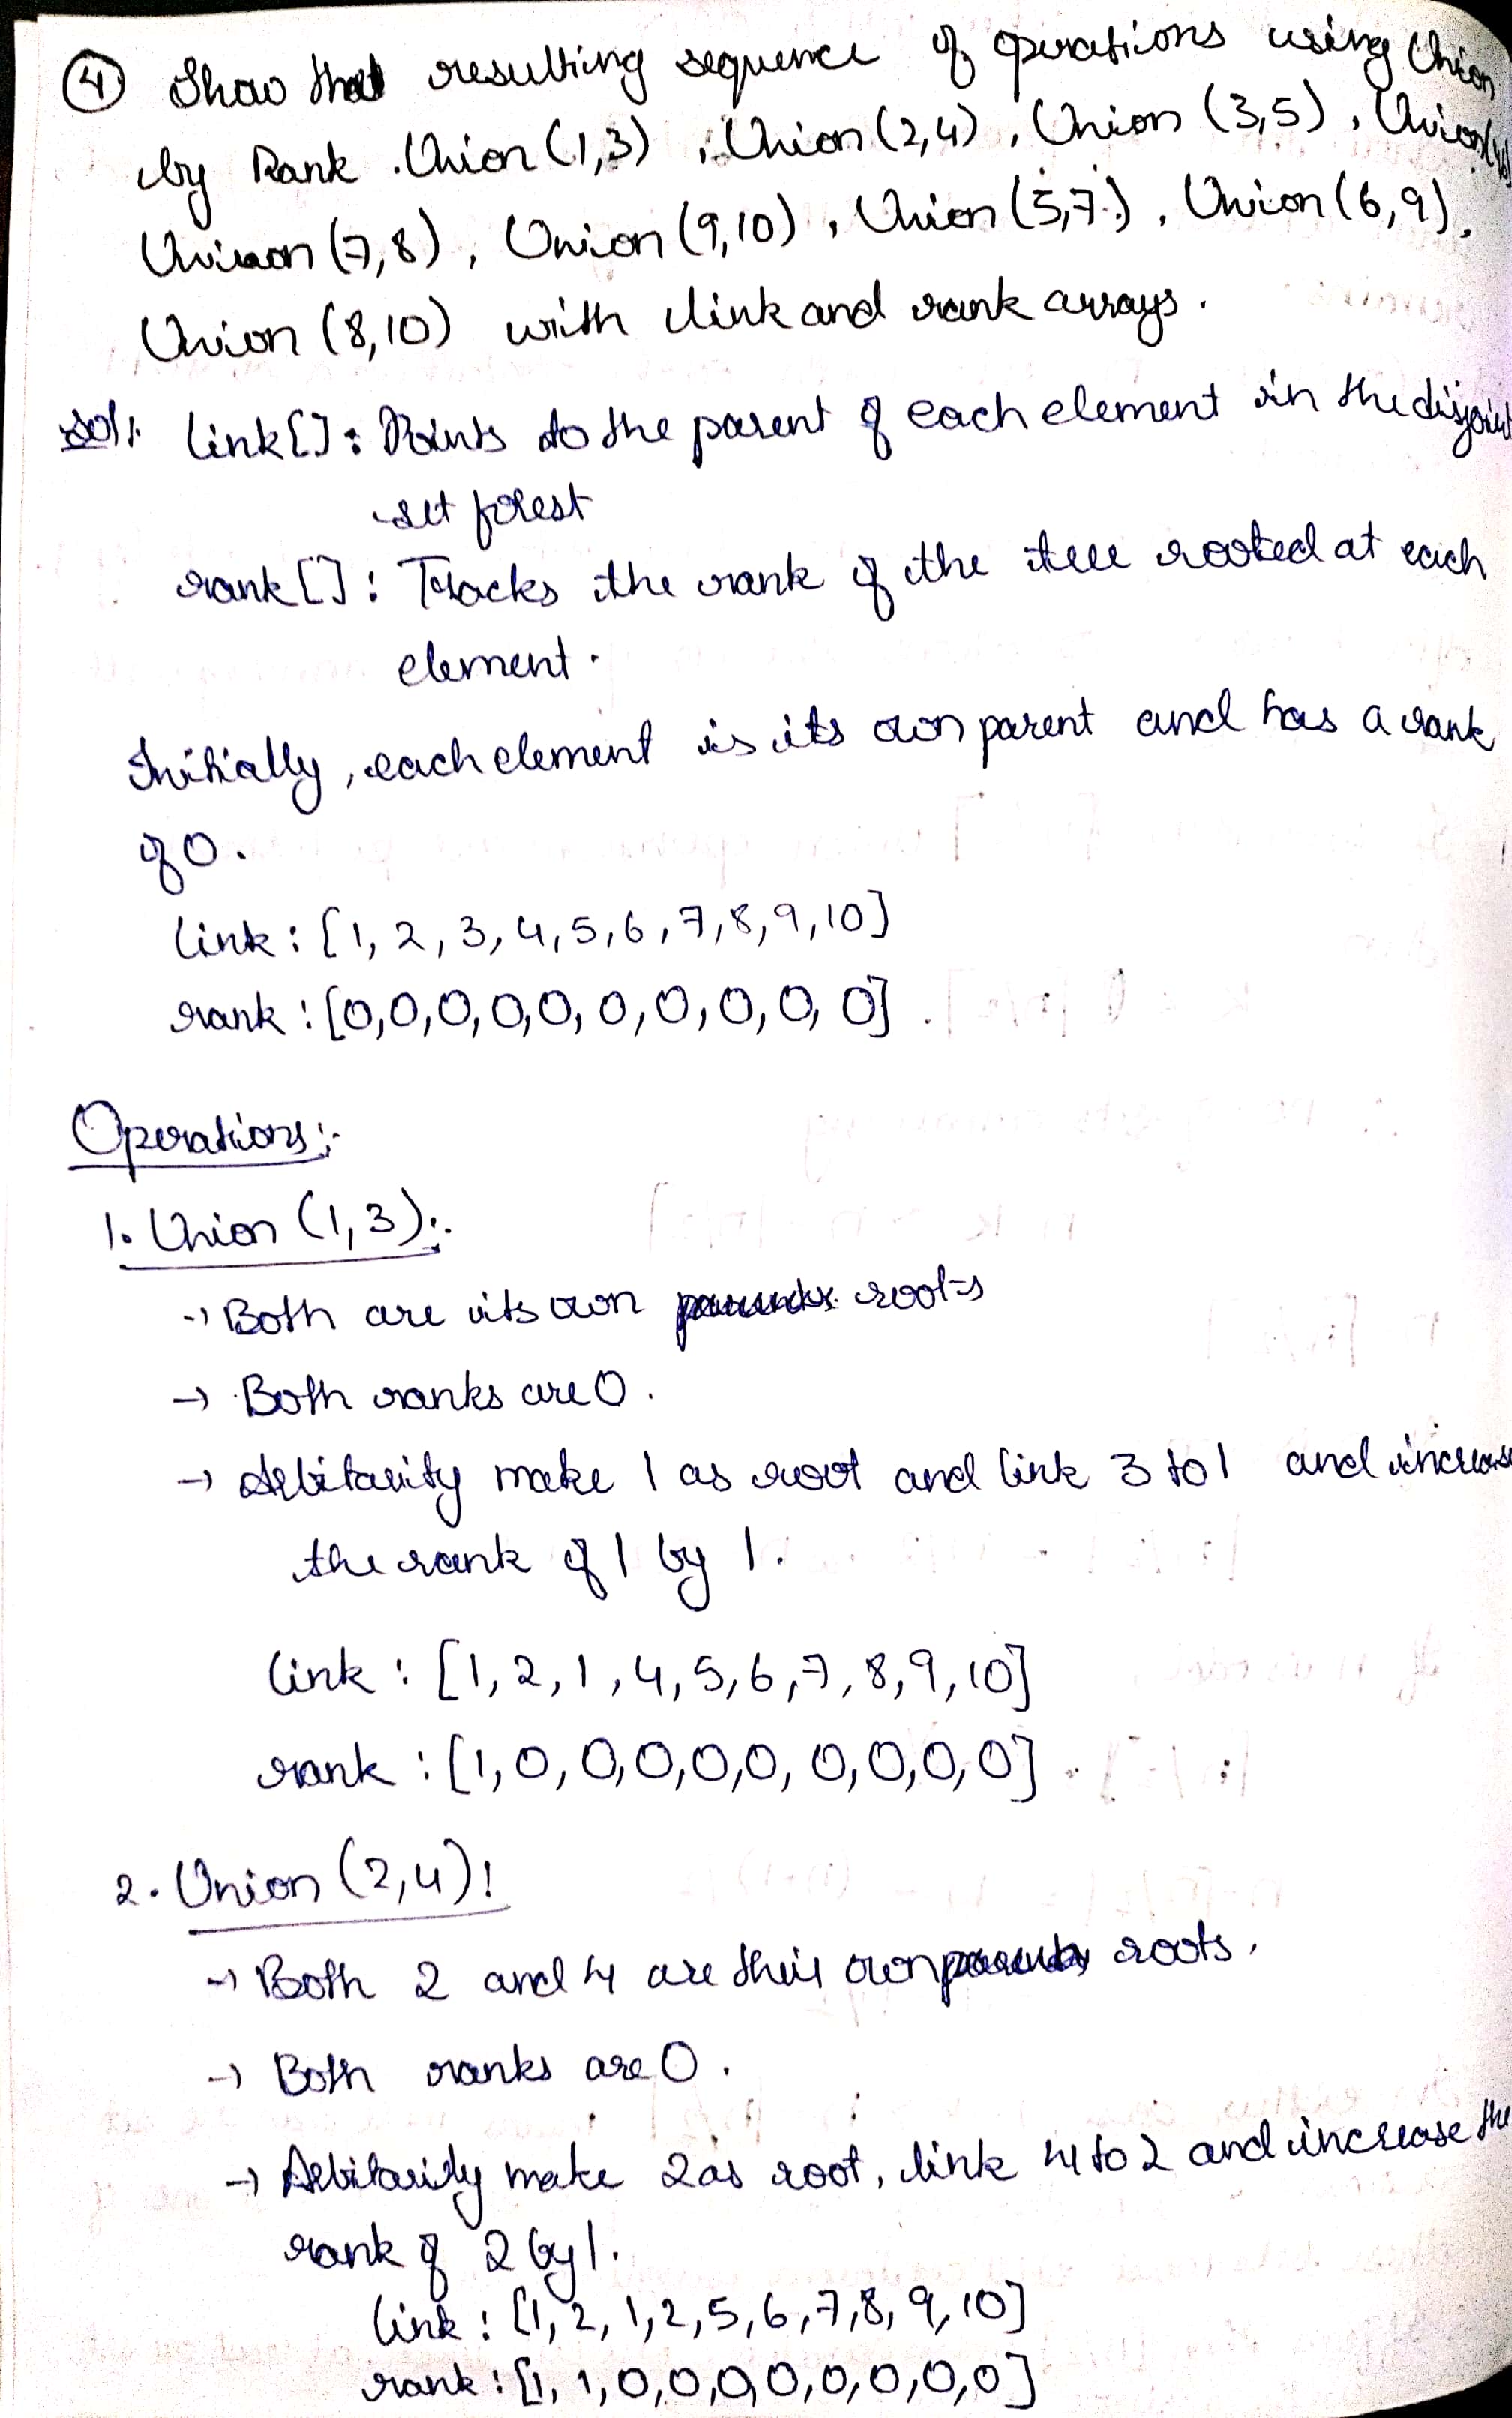 ④ Show that resulting sequence of operations using Union
by Rank. Union (1,3), Union (2,4), Union (3,5), Union
Uniuon (7,8), Onion (9,10), Union (5,7), Union (6,9),
Union (8,10) with link and rank arrays.
Sol: link[]: Points to the parent of each element in the disjoint
set forest
rank[]: Tracks the rank of the tree rooted at each
element.
Initially, each element is its own parent and has a rank
of 0.
link: [1, 2, 3, 4, 5, 6, 7, 8, 9, 10]
rank: [0,0,0,0,0,0,0,0,0,0].
Operations:-
1. Union (1,3):.
→ Both are its own roots
→ Both ranks are 0.
→ Arbitarity make 1 as root and link 3 to 1 and increase
the rank of 1 by 1.
link: [1, 2, 1, 4, 5, 6, 7, 8, 9, 10]
rank: [1, 0, 0, 0, 0, 0, 0, 0, 0, 0]
2. Union (2,4):
→ Both 2 and 4 are their own roots.
→ Both ranks are 0.
→ Arbitarity make 2 as root, link 4 to 2 and increase the
rank of 2 by 1.
link: [1, 2, 1, 2, 5, 6, 7, 8, 9, 10]
rank: [1, 1, 0, 0, 0, 0, 0, 0, 0, 0]